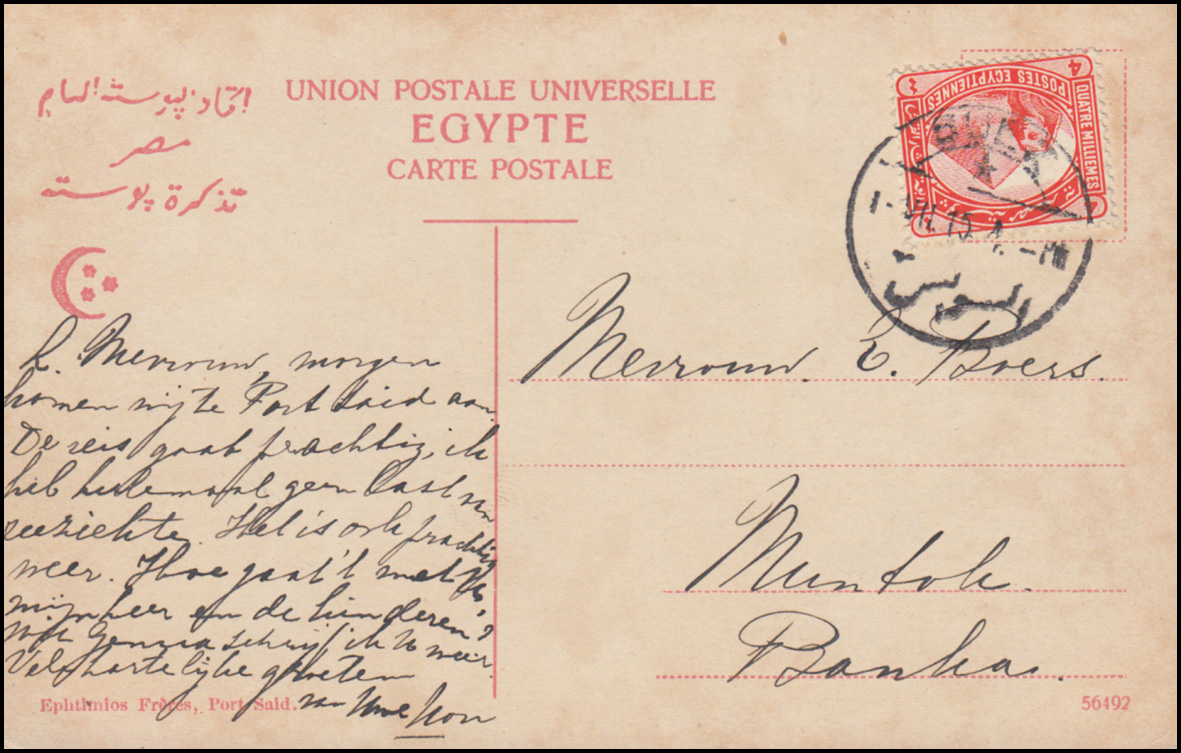 اتحاد پوسته العام
مصر
تذكرة پوسته
UNION POSTALE UNIVERSELLE
EGYPTE
CARTE POSTALE
4
POSTES EGYPTIENNES
QUATRE MILLIEMES
٤
SUEZ
1-VII.15 4-PM
السويس
L. Mevrouw, morgen
komen wij te Port Said aan.
De reis gaat prachtig, ik
heb heelemaal geen last van
zeeziekte. Het is ook prachtig
weer. Hoe gaat 't met U,
mijnheer en de kinderen?
Genua schrijf ik U weer.
Vele hartelijke groeten
van Uwe
Mevrouw. E. Boers.
Muntok.
Banka.
Ephthimios Frères, Port Said.
56492